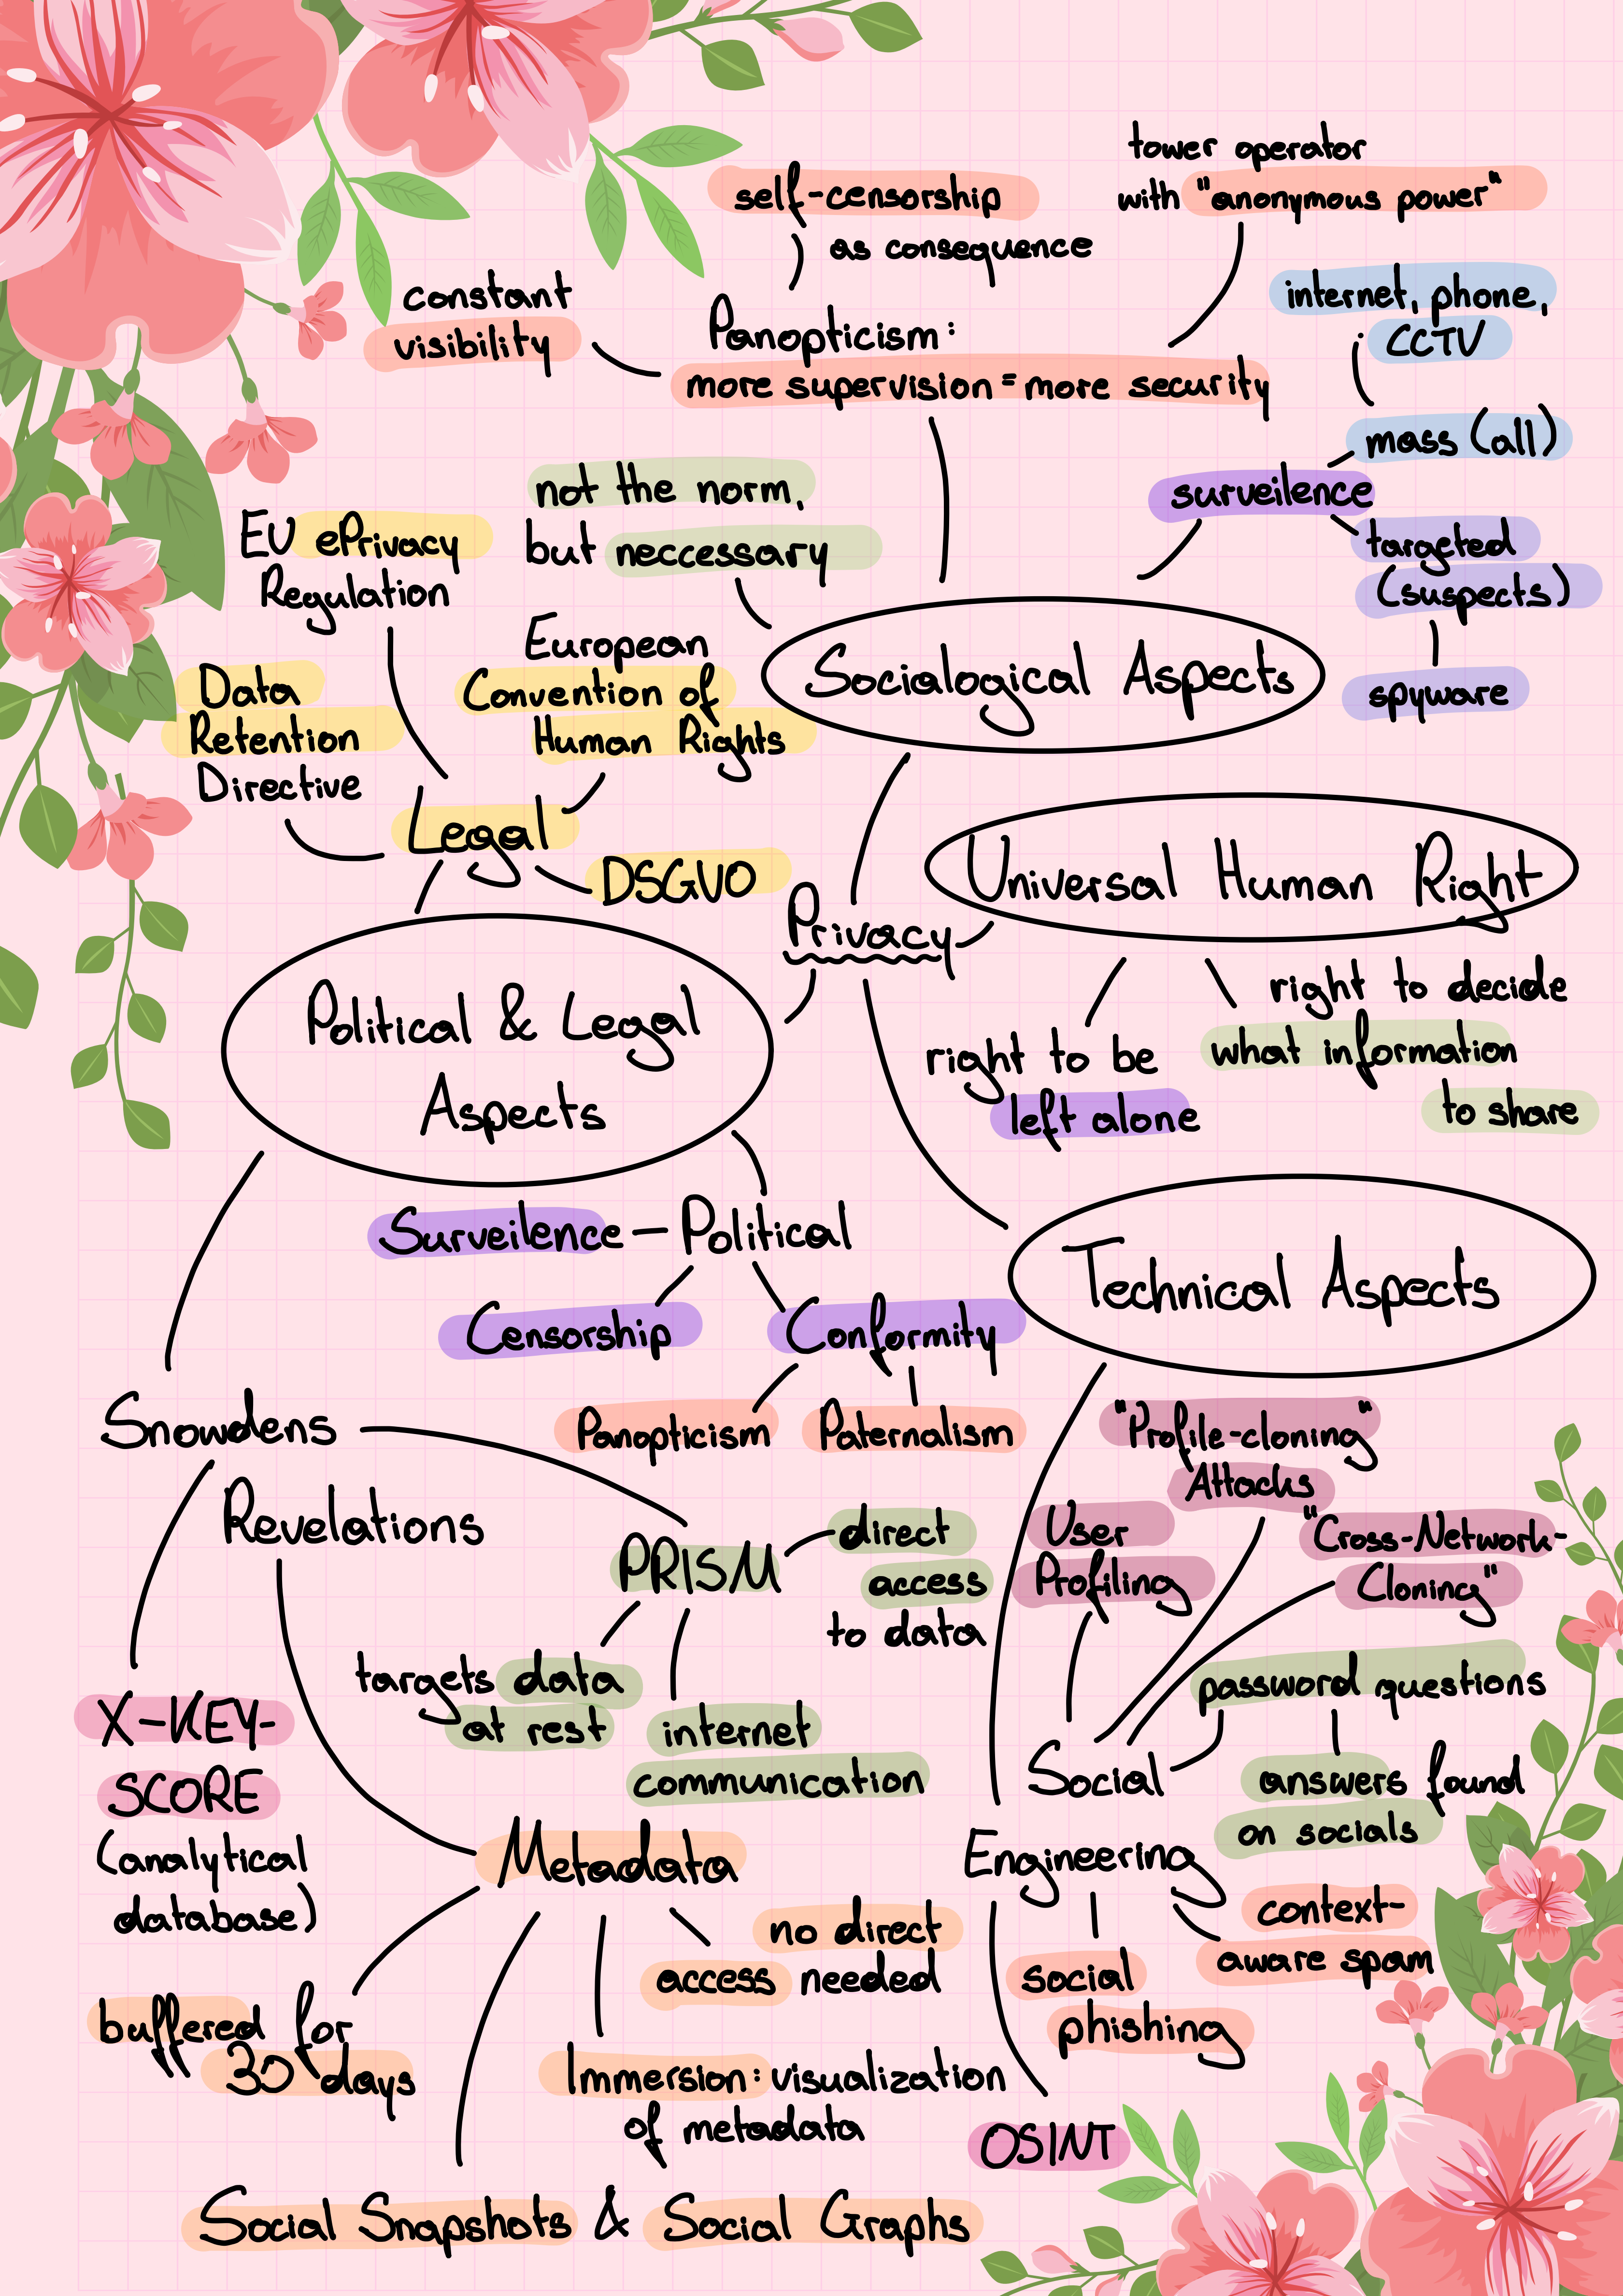 tower operator
with "anonymous power"
self-censorship
as consequence
constant
visibility
Panopticism:
more supervision = more security
internet, phone,
CCTV
mass (all)
surveilence
targeted
(suspects)
spyware
not the norm,
but neccessary
Socialogical Aspects
EU ePrivacy
Regulation
European
Convention of
Human Rights
Data
Retention
Directive
Legal
DSGVO
Privacy
Universal Human Right
right to be
left alone
right to decide
what information
to share
Political & Legal
Aspects
Surveilence – Political
Censorship
Conformity
Panopticism
Paternalism
Technical Aspects
Snowdens
Revelations
PRISM
direct
access
to data
targets data
at rest
internet
communication
X-KEY-
SCORE
(analytical
database)
Metadata
no direct
access needed
buffered for
30 days
Immersion: visualization
of metadata
Social Snapshots & Social Graphs
"Profile-cloning"
Attacks
User
Profiling
"Cross-Network-
Cloning"
password questions
answers found
on socials
Social
Engineering
context-
aware spam
social
phishing
OSINT